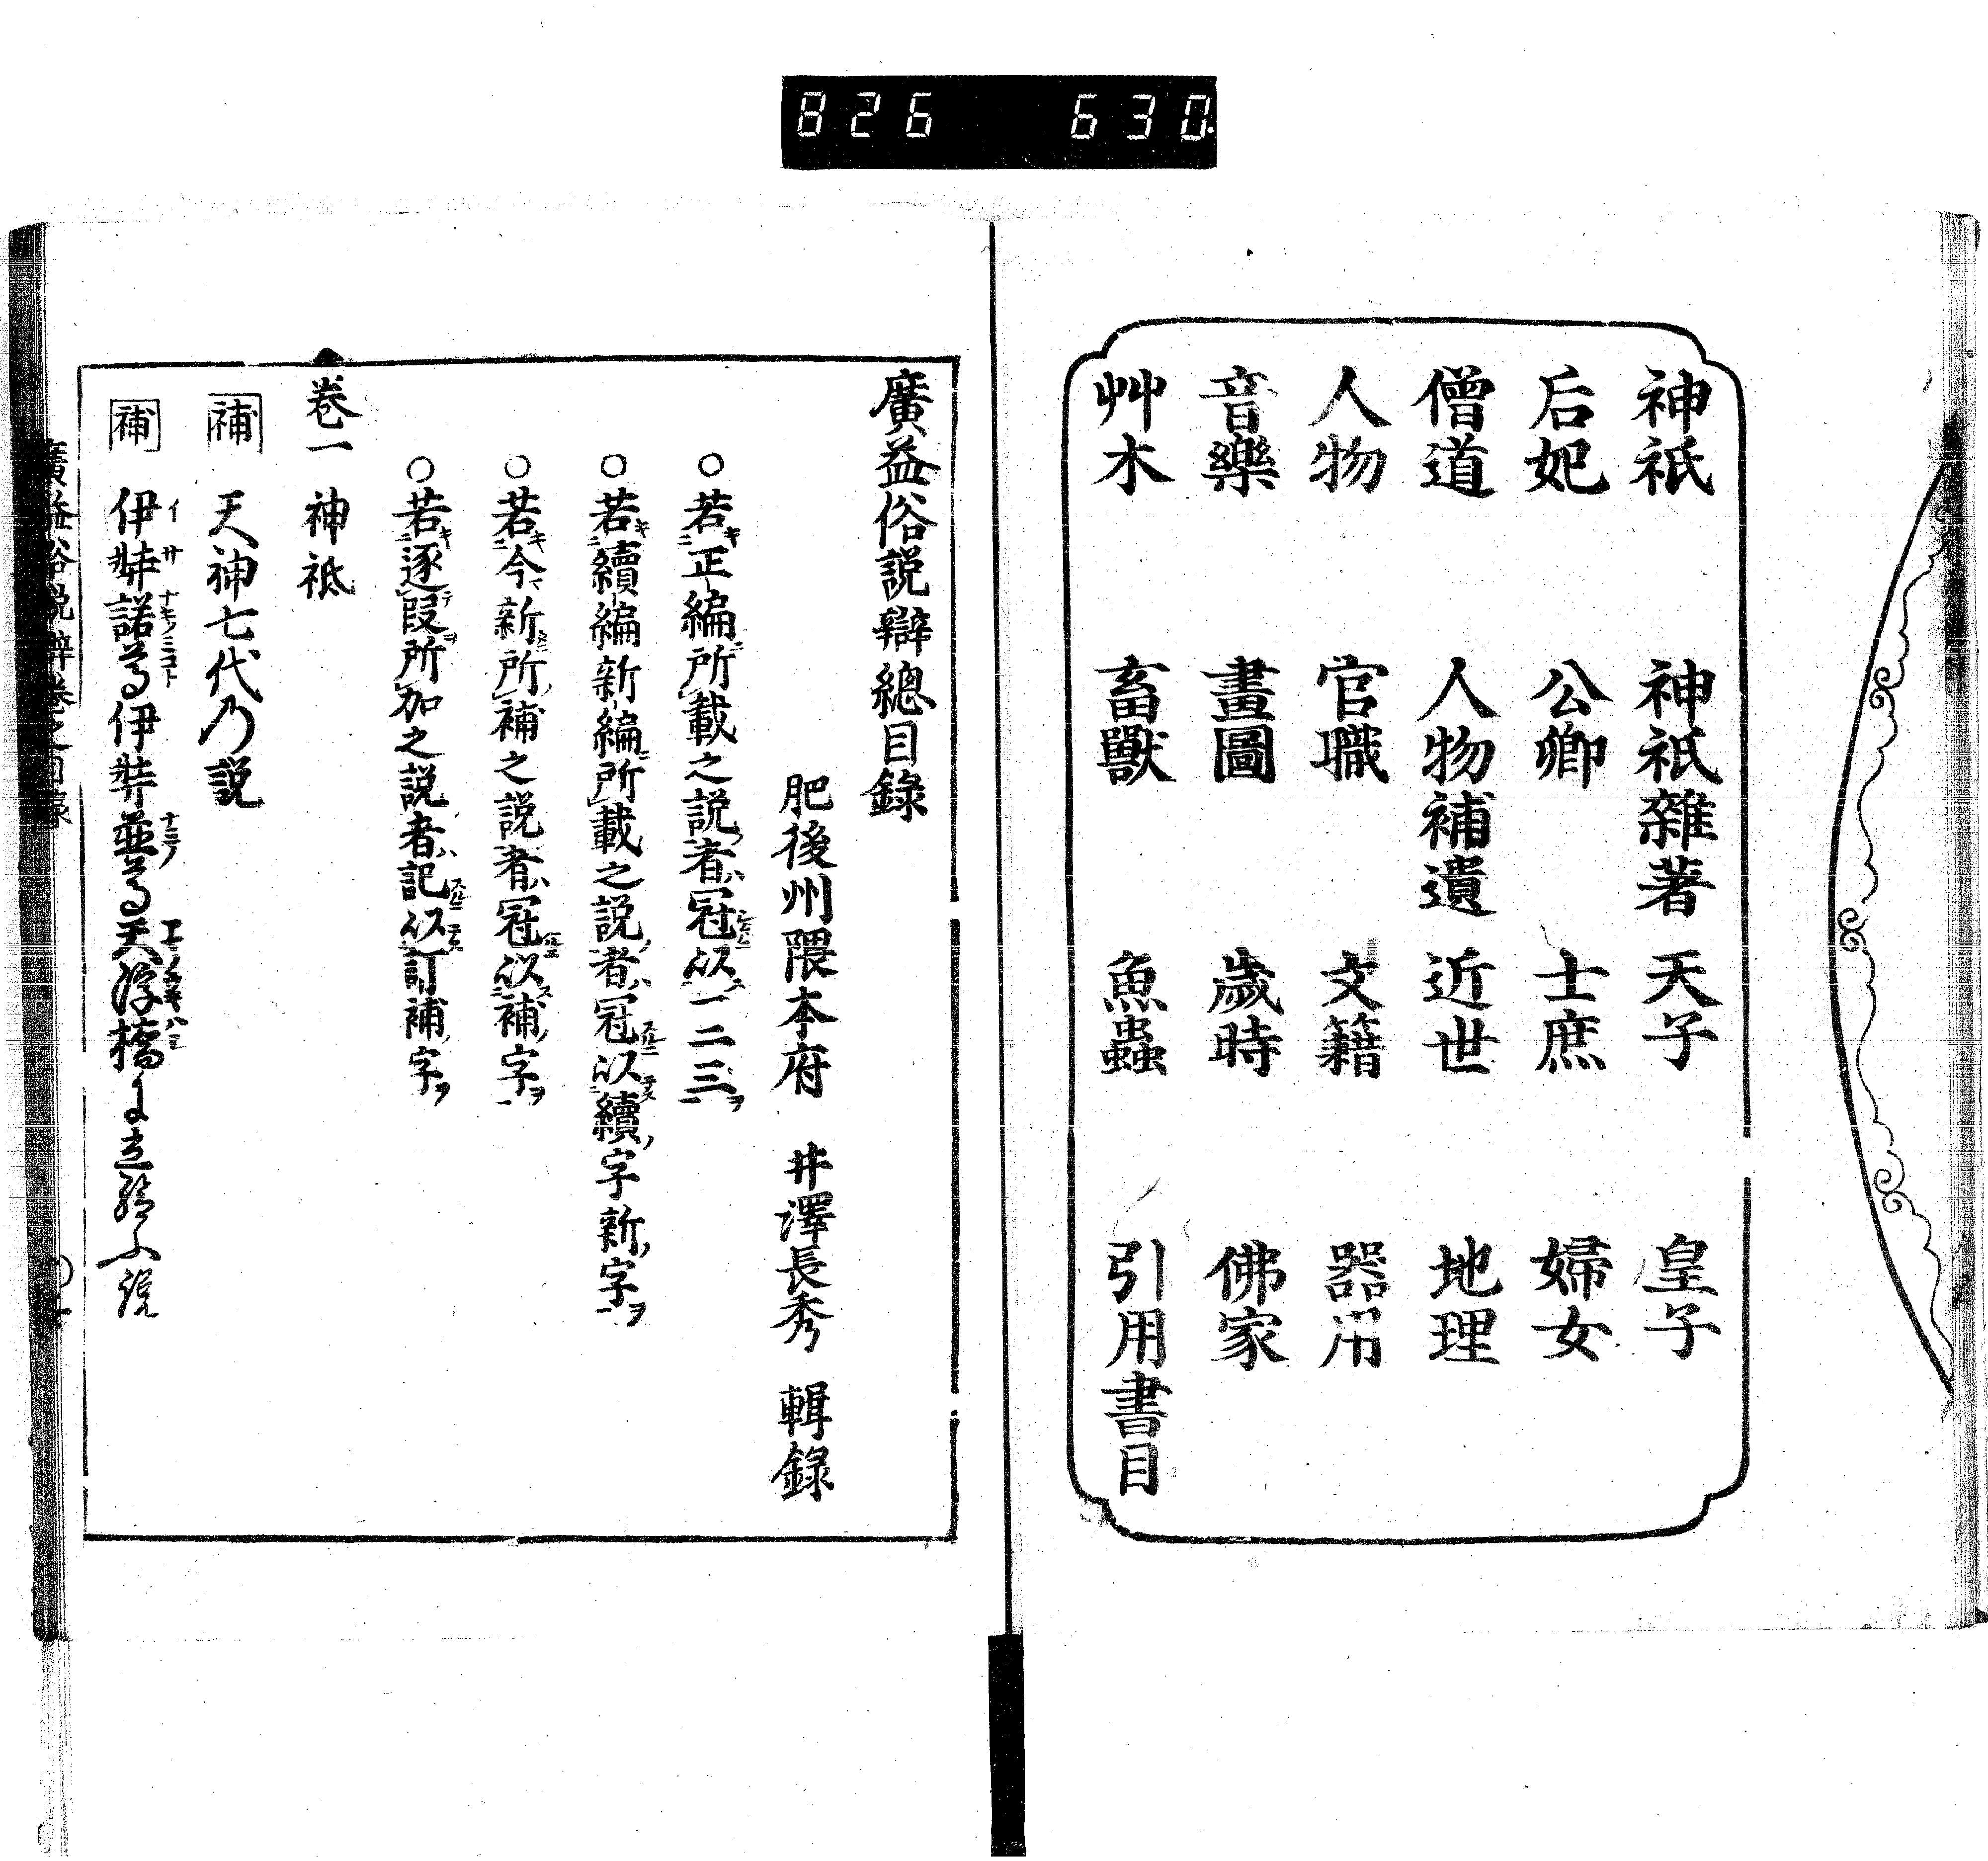 826 630
神祇 神祇雜著 天子 皇子
后妃 公卿 士庶 婦女
僧道 人物補遺 近世 地理
人物 官職 文籍 器用
音樂 畫圖 歲時 佛家
艸木 畜獸 魚蟲 引用書目
廣益俗説辯總目錄
肥後州隈本府 井澤長秀 輯録
○若正編所載之説者冠以一二三
○若續編新編所載之説者冠以續字新字
○若今新所補之説者冠以補字
○若逐段所加之説者記以訂補字
卷一 神祇
補 天神七代乃説
補 伊弉諾尊伊弉並尊天浮橋に立給ふ説
廣益俗説辯卷之目錄